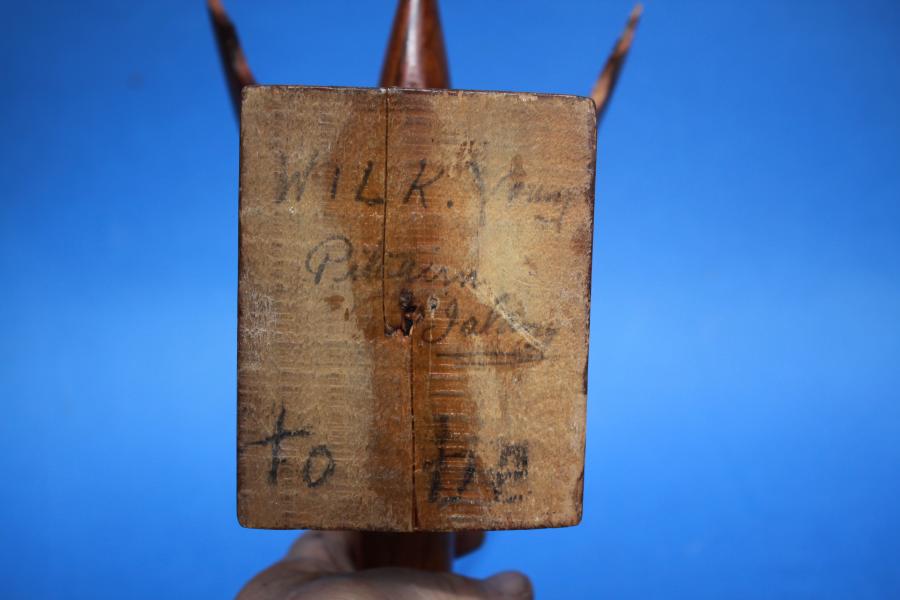 WILK. Young
Pitcairn
Island
to